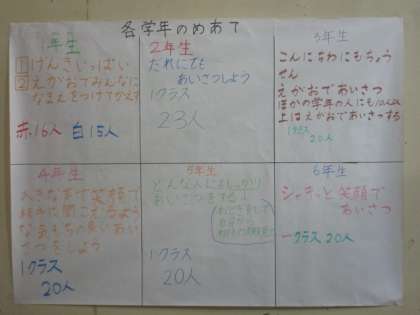 各学年のめあて
1年生
①げんきいっぱい
②えがおでみんなに
なまえをつけてかえす
赤16人 白15人
2年生
だれにでも
あいさつしよう
1クラス
23人
3年生
こんにちわにもちょう
せん
えがおであいさつ
ほかの学年の人にも10人以
上はえがおであいさつする
1クラス
20人
4年生
大きな声で笑顔で
相手に聞こえるよう
な気もちの良いあい
さつをしよう
1クラス
20人
5年生
どんな人にもしっかり
あいさつをする!
自分から
1クラス
20人
6年生
シャキッと笑顔で
あいさつ
一クラス20人